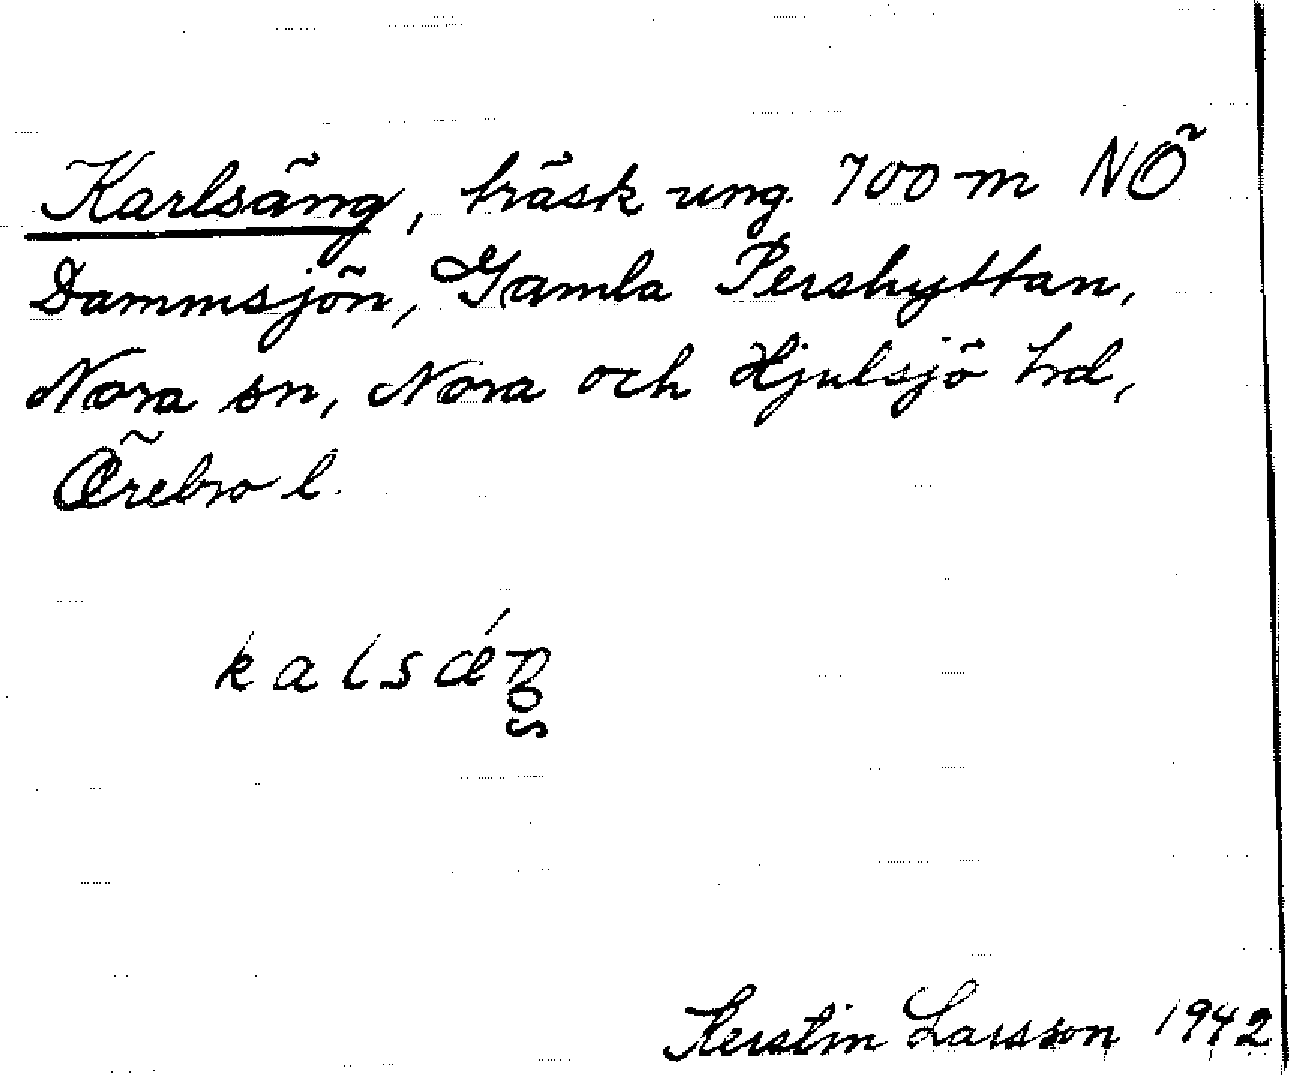 Karlsäng, träsk ung. 700 m NÖ
Dammsjön, Gamla Pershyttan,
Nora sn, Nora och Hjulsjö hd,
Örebro l.
kalsǽŋ
Kerstin Larsson 1942